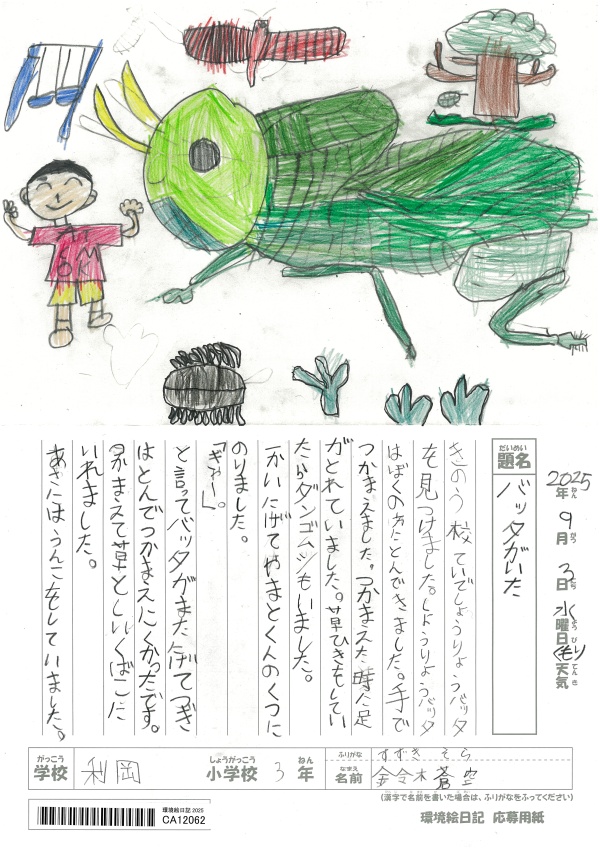 題名 だいめい
バッタがいた
2025年 9月 3日 水曜日 天気
きのう校ていでしょうりょうバッタ
を見つけました。しょうりょうバッタ
はぼくの方にとんできました。手で
つかまえました。つかまえた時に足
がとれていました。草ひきをしてい
たらダンゴムシもいました。
一かいにげてやまとくんのくつに
のりました。
「ぎゃー」。
と言ってバッタがまたにげてつぎ
はとんでつかまえにくかったです。
つかまえて草といっしょに
いれました。
あきにはうんこをしていました。
がっこう 学校 利岡 しょうがっこう 小学校 3 ねん 年
ふりがな すずき そら
なまえ 名前 鈴木 蒼空
(漢字で名前を書いた場合は、ふりがなをふってください)
環境絵日記 2025
CA12062
環境絵日記 応募用紙